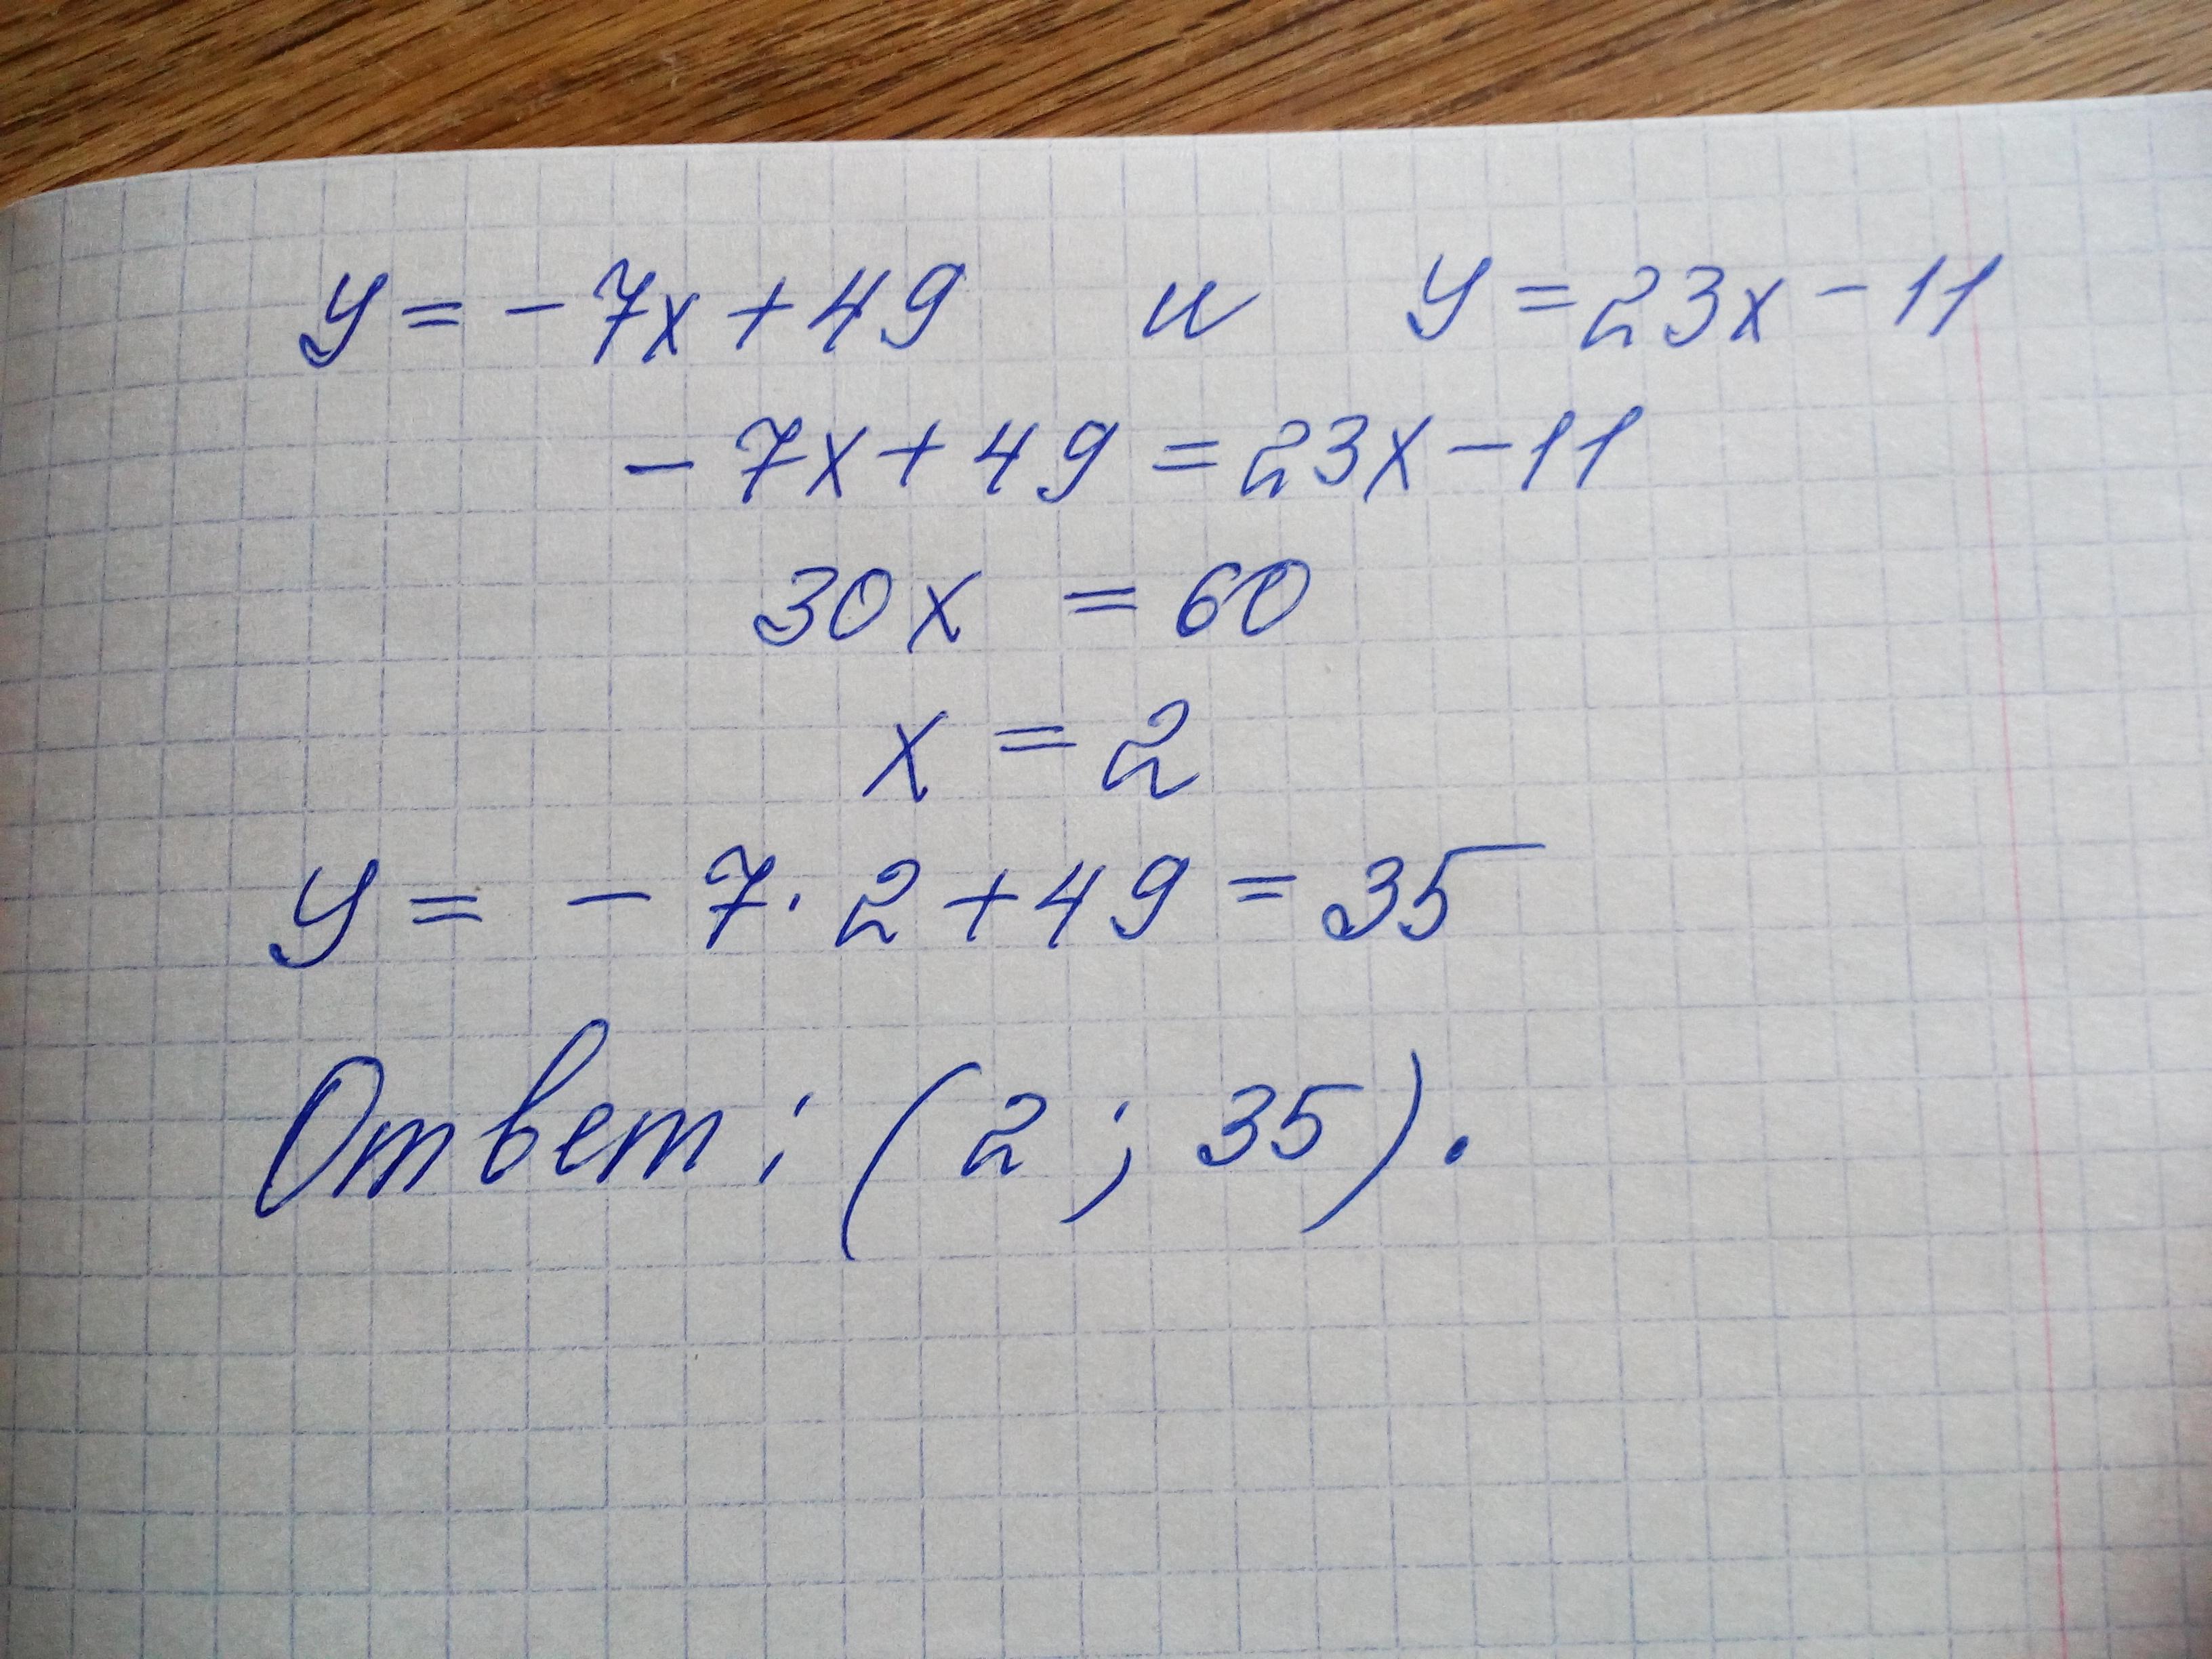 y = - 7x + 49 и y = 23x - 11
- 7x + 49 = 23x - 11
30x = 60
x = 2
y = - 7 · 2 + 49 = 35
Ответ: (2; 35).